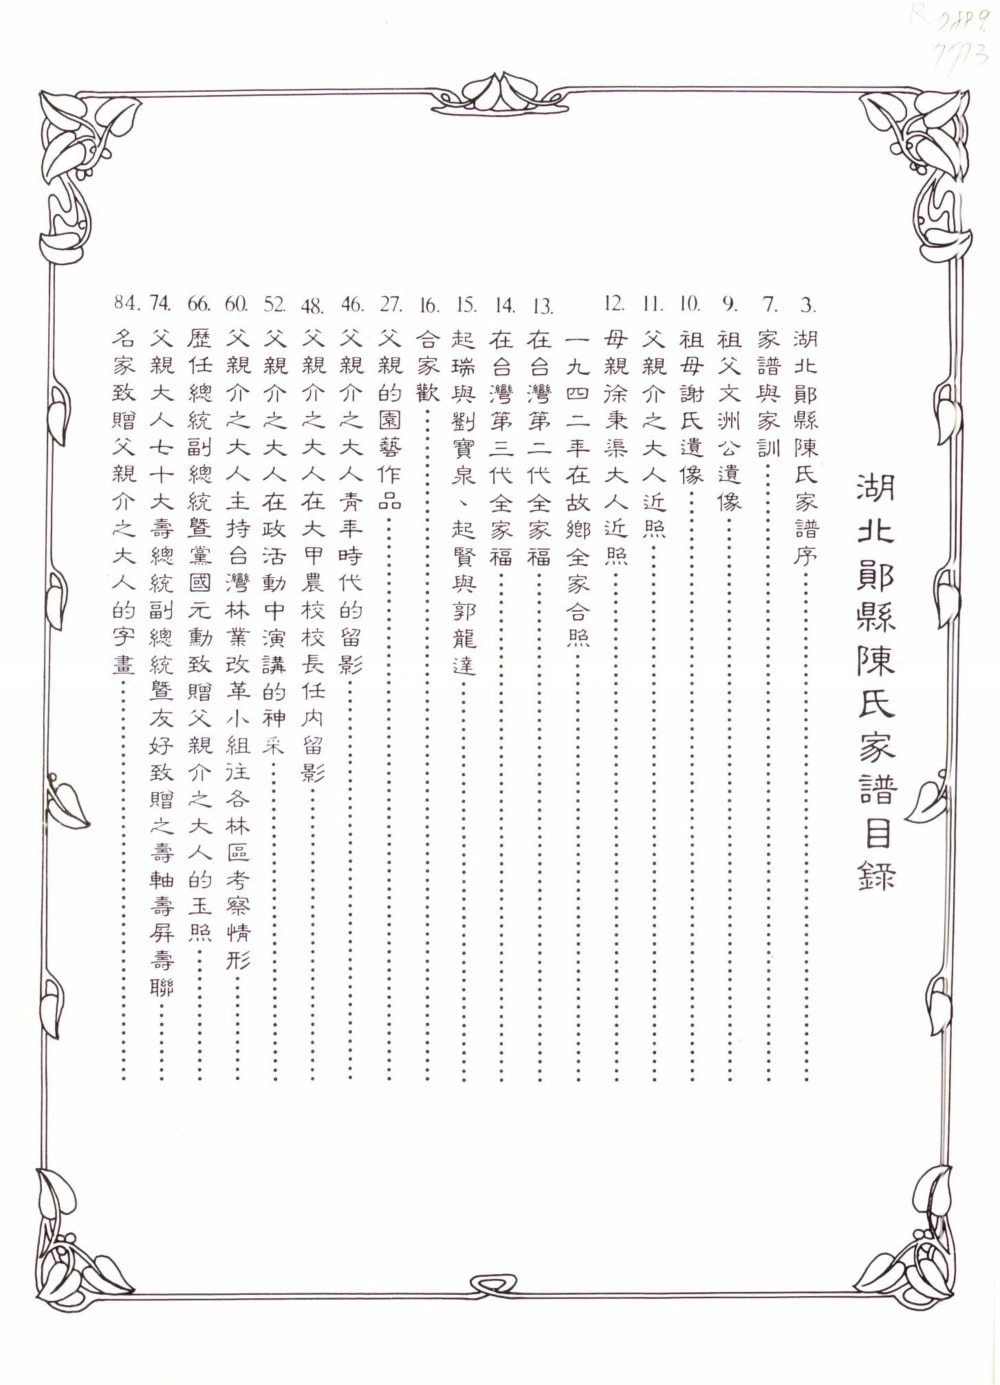 湖北鄖縣陳氏家譜目錄
3. 湖北鄖縣陳氏家譜序
7. 家譜與家訓
9. 祖父文洲公遺像
10. 祖母謝氏遺像
11. 父親介之大人近照
12. 母親徐秉渠大人近照
一九四二年在故鄉全家合照
13. 在台灣第二代全家福
14. 在台灣第三代全家福
15. 起瑞與劉寶泉、起賢與郭龍達
16. 合家歡
27. 父親的園藝作品
46. 父親介之大人青年時代的留影
48. 父親介之大人在大甲農校校長任內留影
52. 父親介之大人在政活動中演講的神采
60. 父親介之大人主持台灣林業改革小組往各林區考察情形
66. 歷任總統副總統暨黨國元勳致贈父親介之大人的玉照
74. 父親大人七十大壽總統副總統暨友好致贈之壽軸壽屏壽聯
84. 名家致贈父親介之大人的字畫